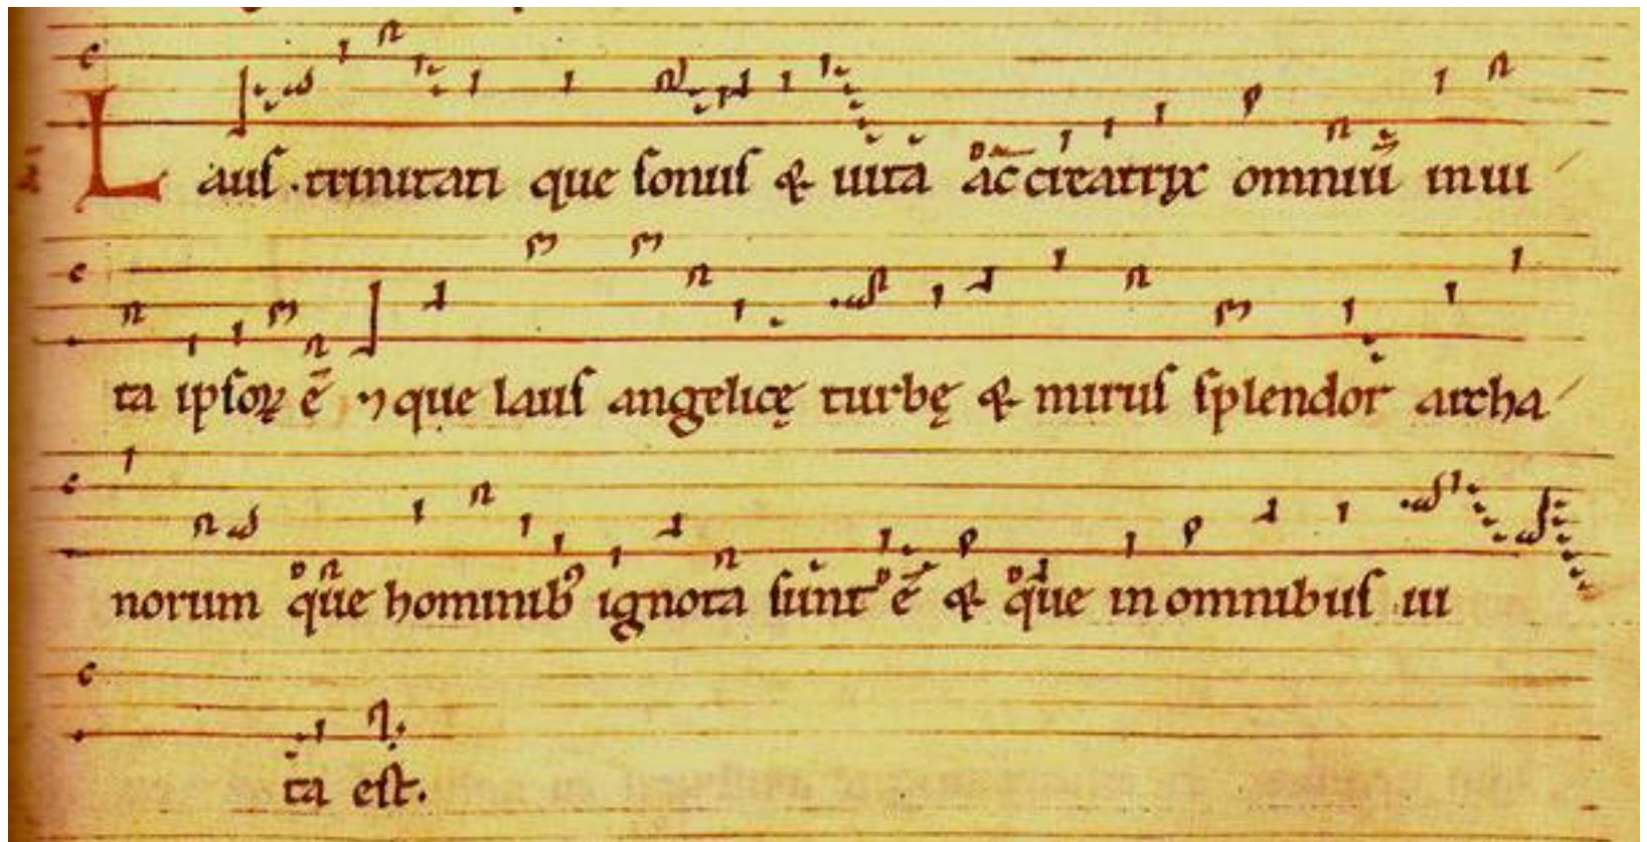 Laus trinitati que sonus & uita ac creatrix omniū in ui
ta ipsoꝝ ē ⁊ que laus angelicę turbę & mirus splendor archa
norum que hominibꝰ ignota sunt ē & que in omnibus ui
ta est.